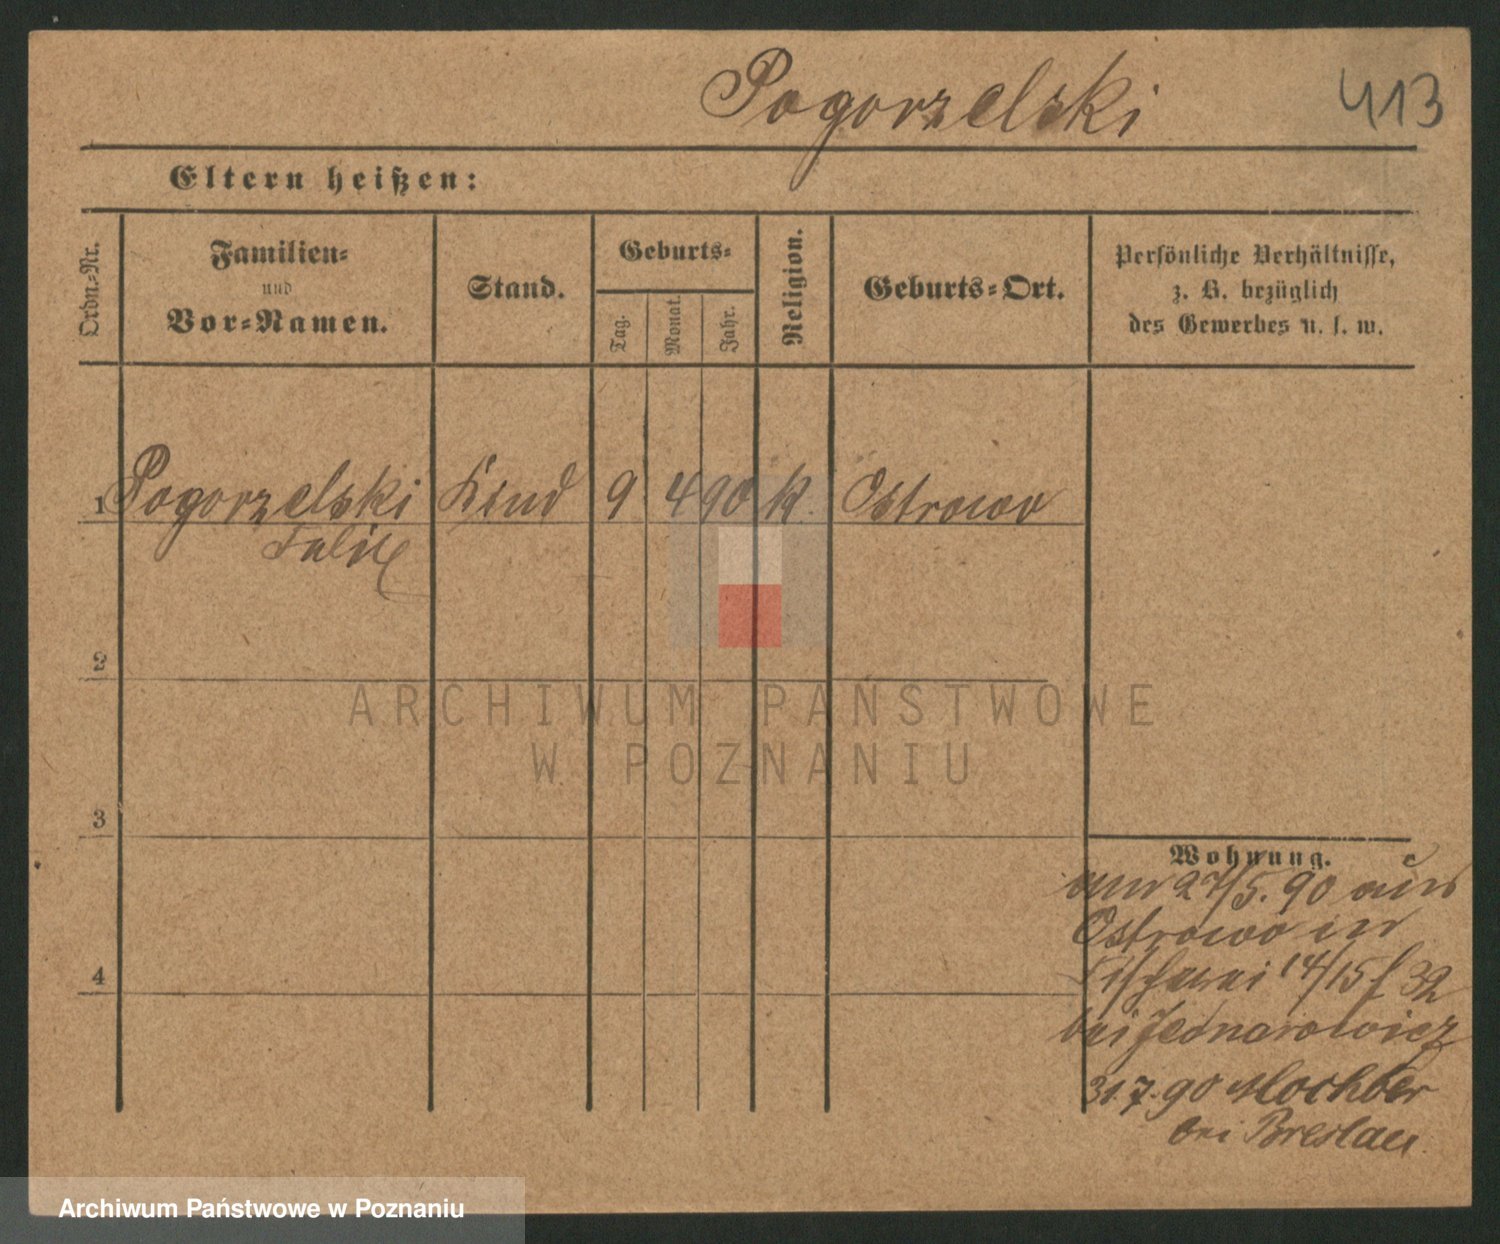 Pogorzelski
413
Eltern heißen:
Ordn.-Nr.
Familien-
und
Vor-Namen.
Stand.
Geburts-
Tag.
Monat.
Jahr.
Religion.
Geburts-Ort.
Persönliche Verhältnisse,
z. B. bezüglich
des Gewerbes u. s. w.
1 Pogorzelski Kind 9 4 90 k. Ostrowo
Felix
2
3
4
Wohnung.
27/5. 90 aus
Ostrowo in
Fischerei 14/15 32
bei
31.7.90 Mochber
bei Breslau
ARCHIWUM PAŃSTWOWE
W POZNANIU
Archiwum Państwowe w Poznaniu